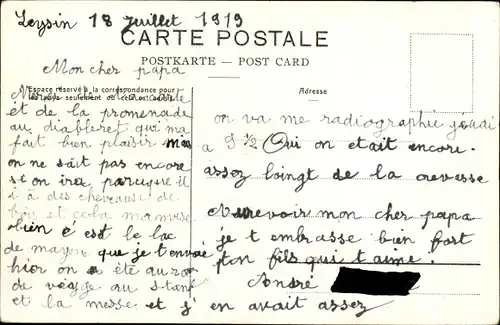 Leysin 18 Juillet 1919
CARTE POSTALE
POSTKARTE — POST CARD
Mon cher papa
Espace réservé à la correspondance pour
seulement
Adresse
et de la promenade
au diableret qui ma
fait bien plaisir mes
on ne sait pas encore
si on ira parceque il
i a des cheveaux de
bois et cela mamuse
bien é est le lac
de mayen que je t'envoé
hier on a été
de véage au stand
et la messe et j'en avait assez
on va me radiographié jeudi
a 9 ½ Oui on etait encore
assez loingt de la crevasse
Aurevoir mon cher papa
je t embrasse bien fort
ton fils qui t'aime.
André